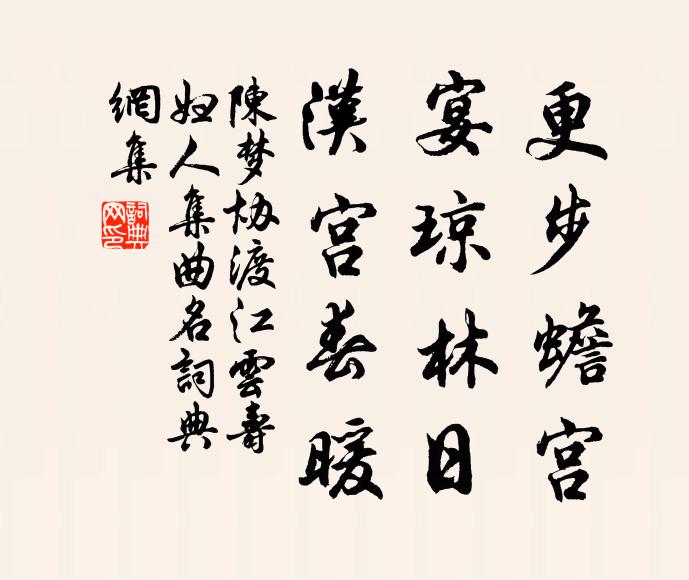 更步蟾宫
宴琼林日
漢宫春暖
陳梦协渡江雲壽
妇人集曲名詞典
網集
詞典
网印